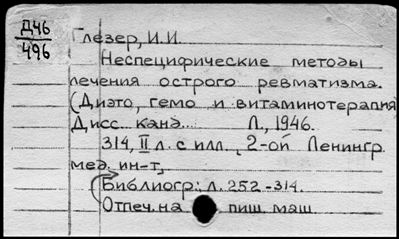 Д46
496
Глезер, И.И.
Неспецифические методы
лечения острого ревматизма.
(Диэто, гемо и витаминотерапия)
Дисс. канд. Л., 1946.
314, II л. с илл. 2-ой Ленингр.
мед. ин-т,
Библиогр.: л. 252-314.
Отпеч. на пиш. маш.